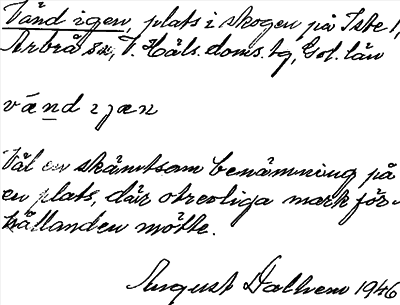 Vänd igen, plats i skogen på Iste 1,
Arbrå sn, V. Häls. doms. tg, Gvl. län
vänd ijæn
Väl en skämtsam benämning på
en plats, där otrevliga mark för-
hållanden mötte.
August Dalhem 1946